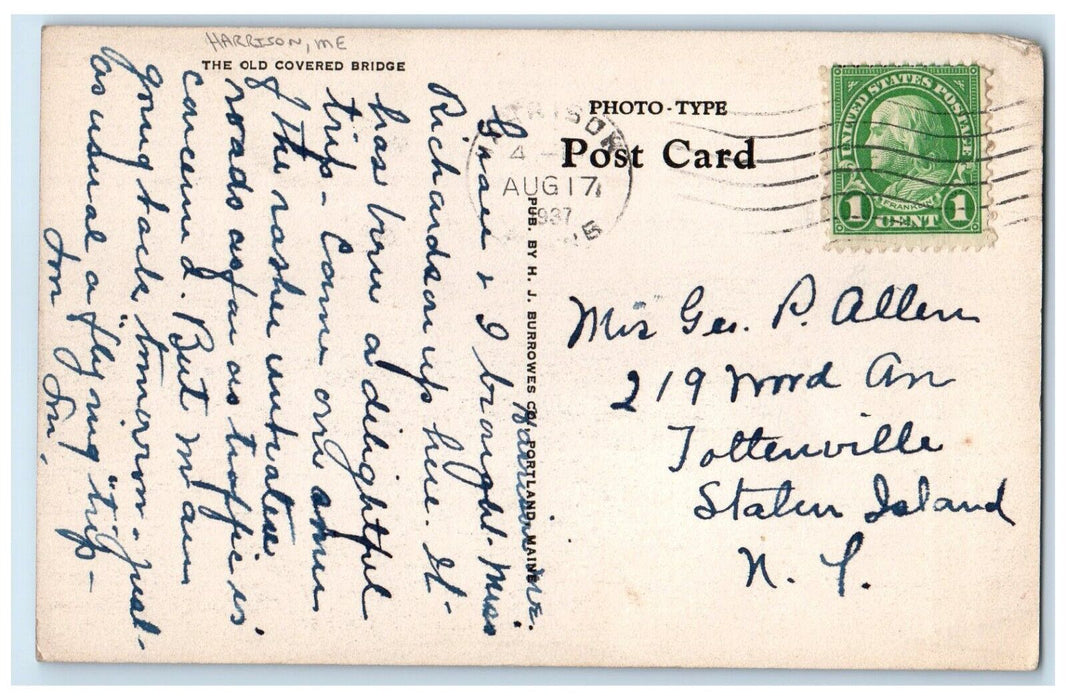 HARRISON, ME
THE OLD COVERED BRIDGE
PHOTO-TYPE
Post Card
AUG 17
1937
UNITED STATES POSTAGE
FRANKLIN
1 CENT 1
PUB. BY H. J. BURROWES CO., PORTLAND, MAINE
Harrison Me.
Grace & I brought Miss
Richardson up here. It
has been a delightful
trip - Came over some
of the rather
roads as far as traffic is
concerned. But we are
going back tomorrow - just
as usual a "flying" trip -
Mrs Geo. P. Allen
219 Wood Av
Tottenville
Staten Island
N. Y.